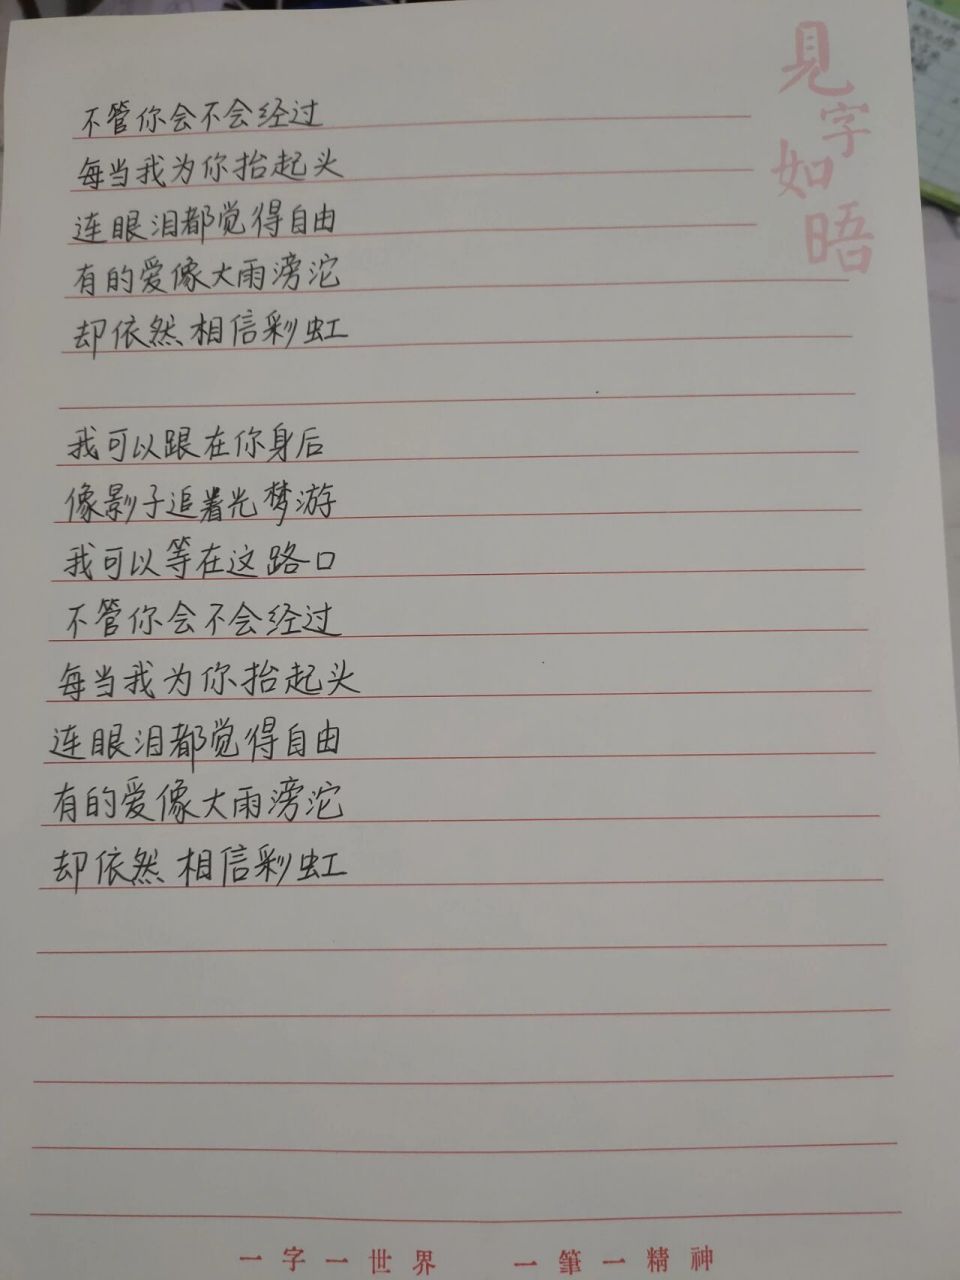 見字如晤
不管你会不会经过
每当我为你抬起头
连眼泪都觉得自由
有的爱像大雨滂沱
却依然相信彩虹
我可以跟在你身后
像影子追着光梦游
我可以等在这路口
不管你会不会经过
每当我为你抬起头
连眼泪都觉得自由
有的爱像大雨滂沱
却依然相信彩虹
一字一世界 一筆一精神